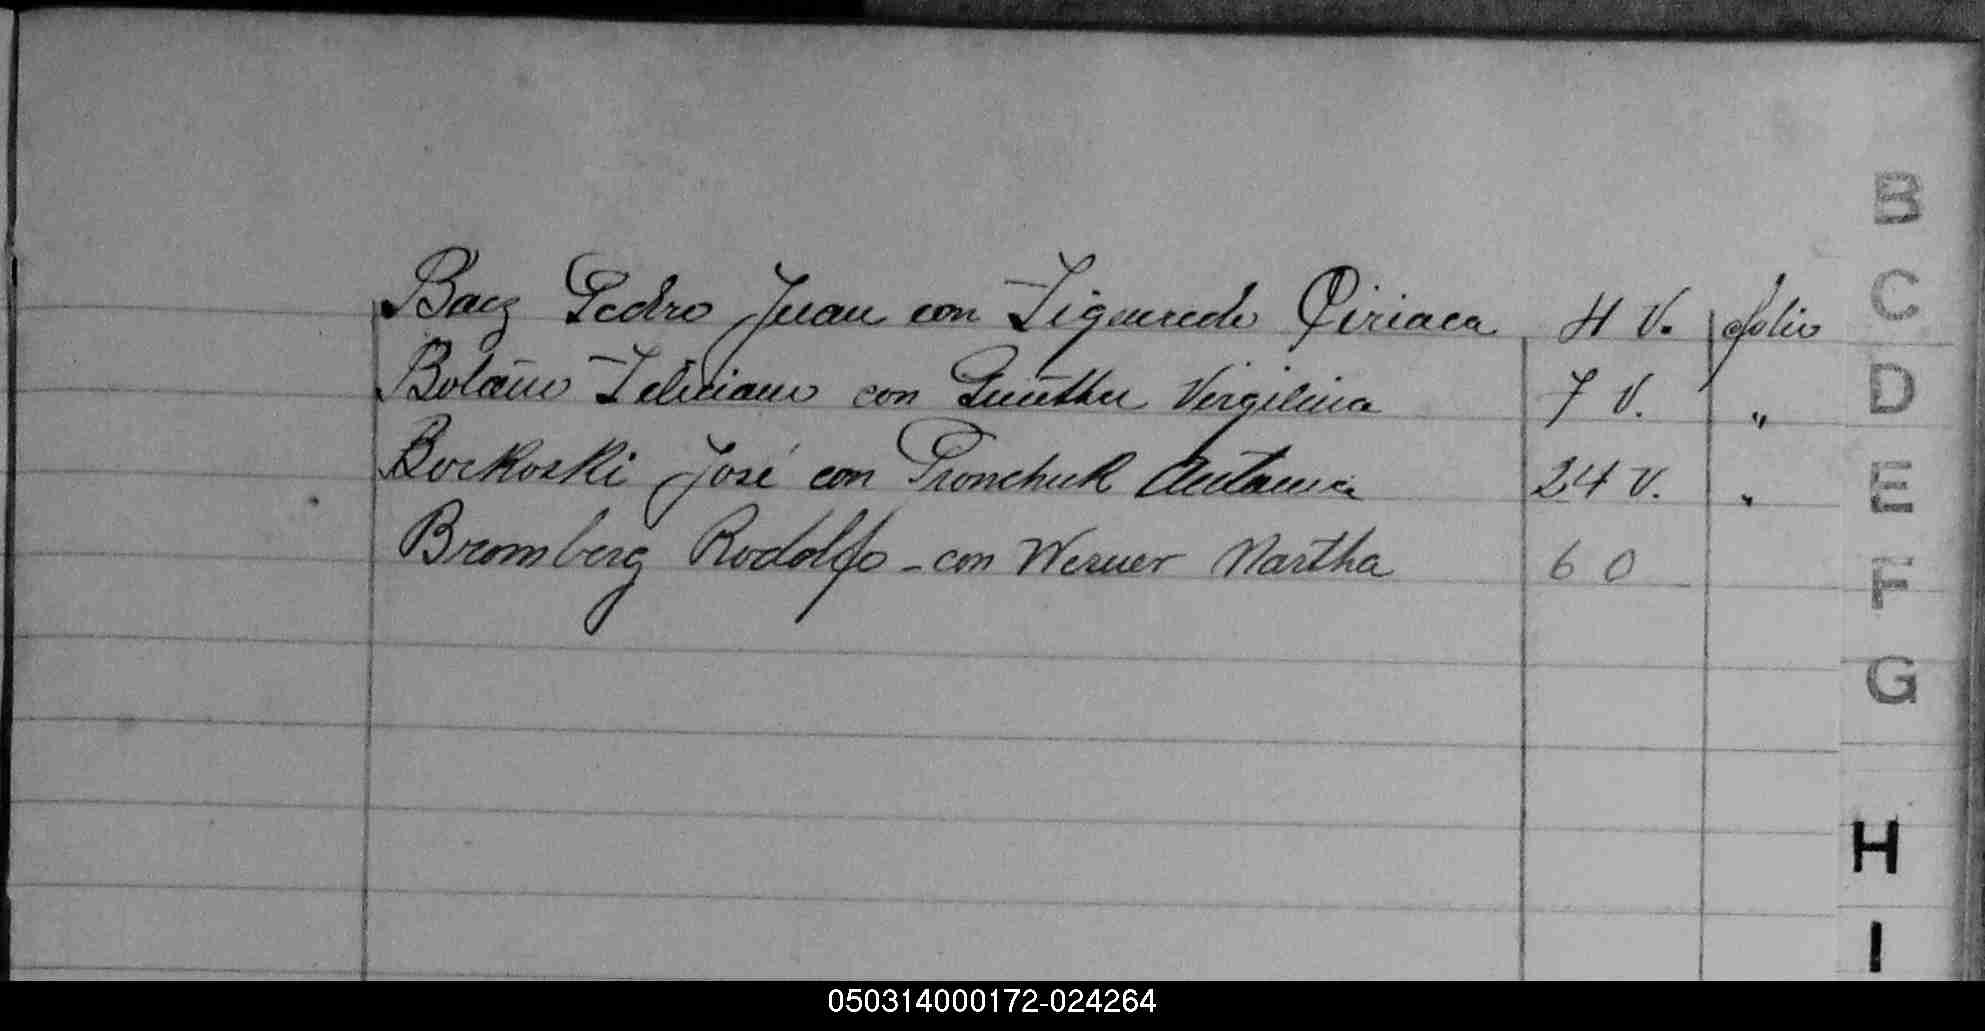 Baez Pedro Juan con Figueredo Ciriaca 4 V. folio
Bolaño Feliciano con Günther Virgilina 7 V. "
Borkoski José con Pronchuk Antonia 24 V. "
Bromberg Rodolfo - con Werner Martha 60
B
C
D
E
F
G
H
I
050314000172-024264